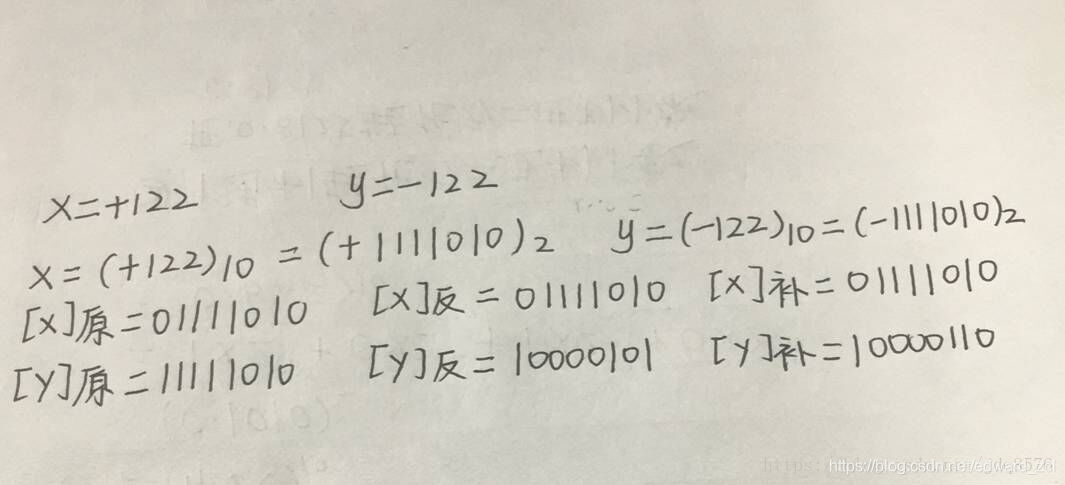 x=+122 y=-122
x=(+122)10=(+1111010)2 y=(-122)10=(-1111010)2
[x]原=01111010 [x]反=01111010 [x]补=01111010
[y]原=11111010 [y]反=10000101 [y]补=10000110